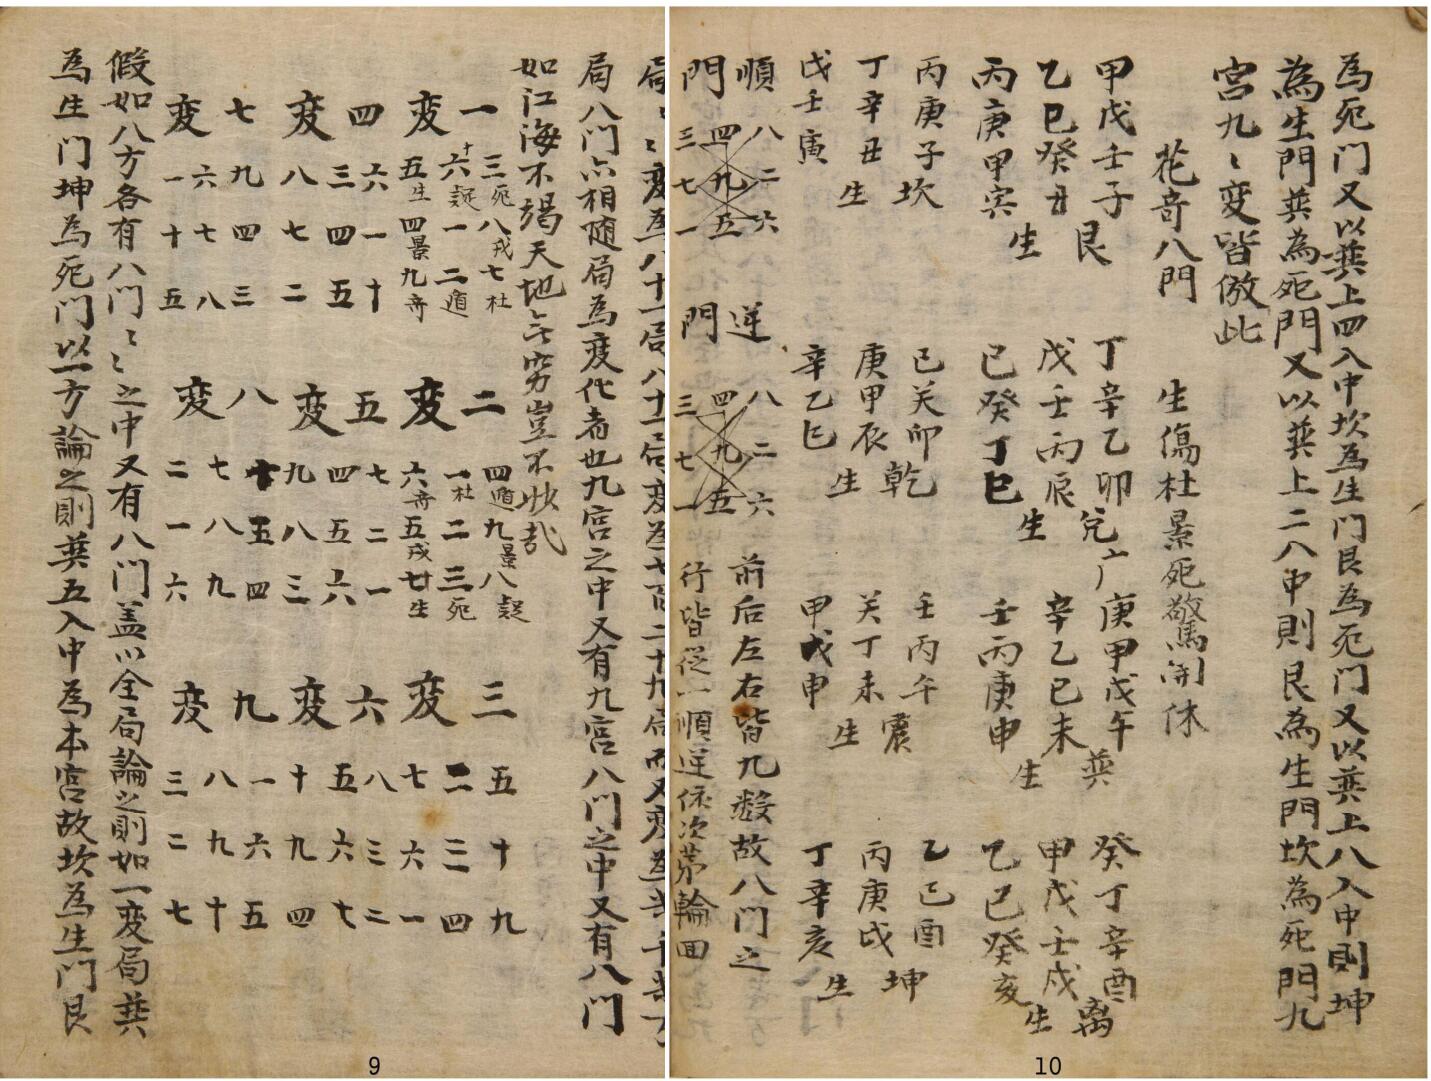 局〻変為八十一局八十一局変為七百二十九局而又変為
局八门亦相随局為変化者也九宮之中又有九宮八门之中又有八门
如江海不竭天地無窮豈不快哉
一変
三死八戎七杜
十六疑一二遁
五生四景九奇
二変
四遁九景八疑
一杜二三死
六奇五戎廿生
三変
五十九
二三四
七六一
四変
六一十
三四五
八七二
五変
七二一
四五六
九八三
六変
八三二
五六七
十九四
七変
九四三
六七八
一十五
八変
十五四
七八九
二一六
九変
一六五
八九十
三二七
假如八方各有八门〻〻之中又有八门盖以全局論之則如一変局巽
為生门坤為死门以一方論之則巽五入中為本宮故坎為生门艮
9
為死门又以巽上四入中坎為生门艮為死门又以巽上八入中則坤
為生門巽為死門又以巽上二八中則艮為生門坎為死門九
宮九〻変皆倣此
花奇八門 生傷杜景死驚開休
甲戊壬子 艮 丁辛乙卯 兌 庚甲戊午 巽 癸丁辛酉 离
乙巳癸丑 生 戊壬丙辰 生 辛乙已未 生 甲戊壬戌 生
丙庚甲寅 已癸丁巳 壬丙庚申 乙已癸亥
丙庚子 坎 已关卯 乾 壬丙午 震 乙已酉 坤
丁辛丑 生 庚甲辰 生 关丁未 生 丙庚戌 生
戊壬寅 辛乙巳 甲戊申 丁辛亥
順 八二六 逆 八二六 前后左右皆九数故八门之
門 四九五 三七一 門 四九五 三七一 行皆從一順逆依次苐輪回
10